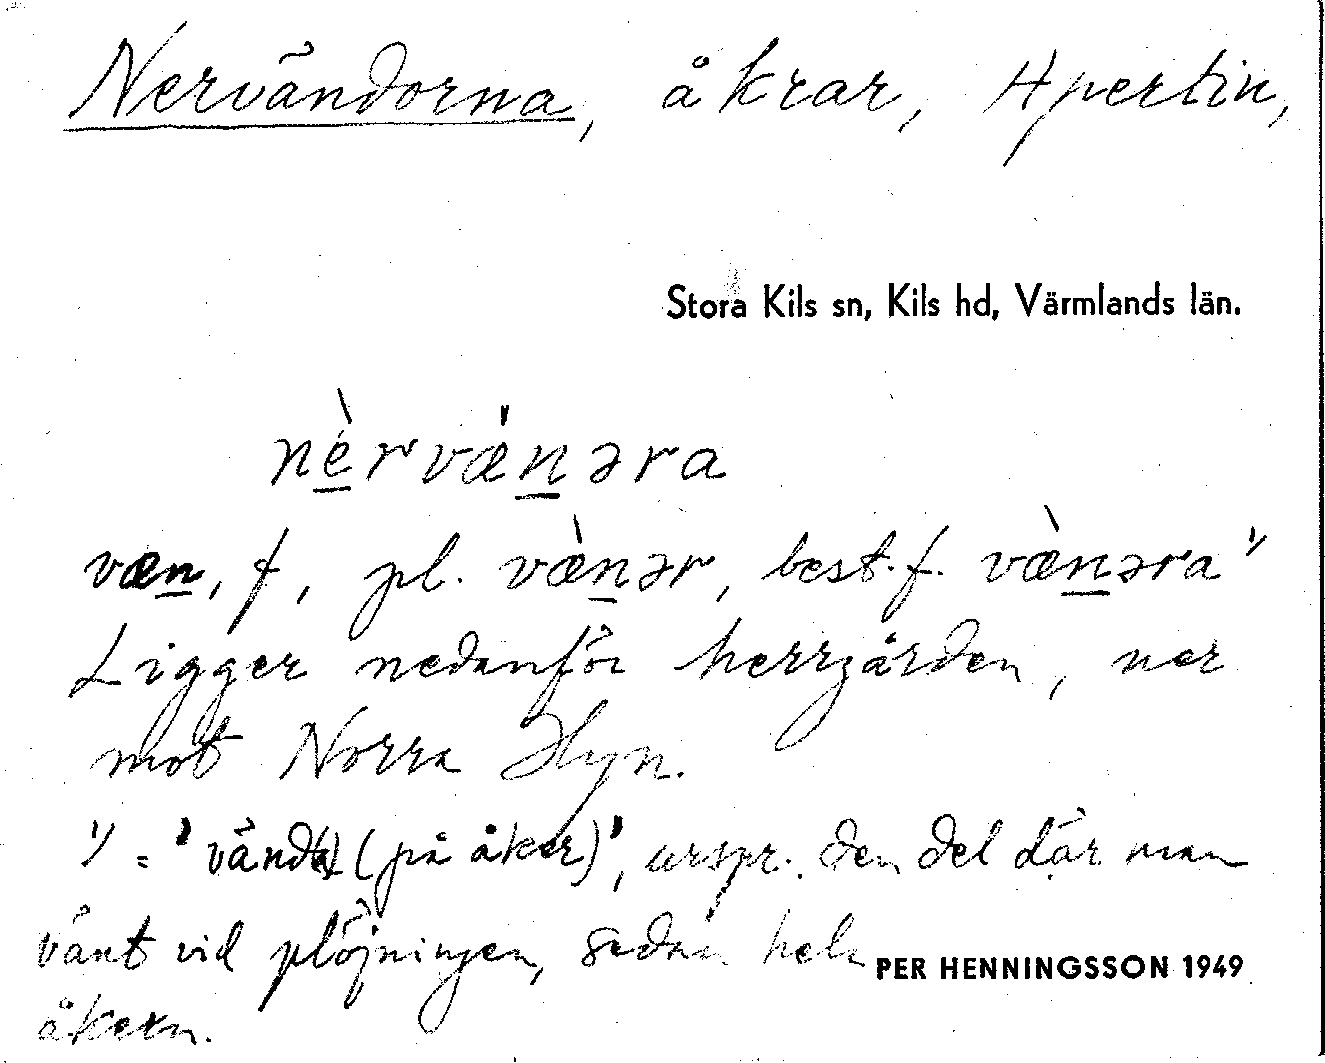 Nervändorna, åkrar, Apertin,
Stora Kils sn, Kils hd, Värmlands län.
nèrvæ̀nəra
væn, f, pl. væ̀nər, best. f. væ̀nəra ¹⁾
Ligger nedanför herrgården, ner
mot Norra Hyn.
¹⁾ = 'vänd(e) (på åker)', urspr. den del där man
vänt vid plöjningen, sedan hela
PER HENNINGSSON 1949
åkern.